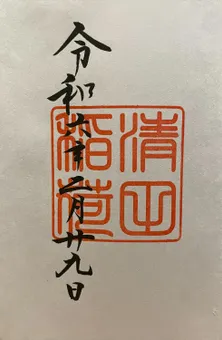 令和六年二月廿九日
清
稲荷